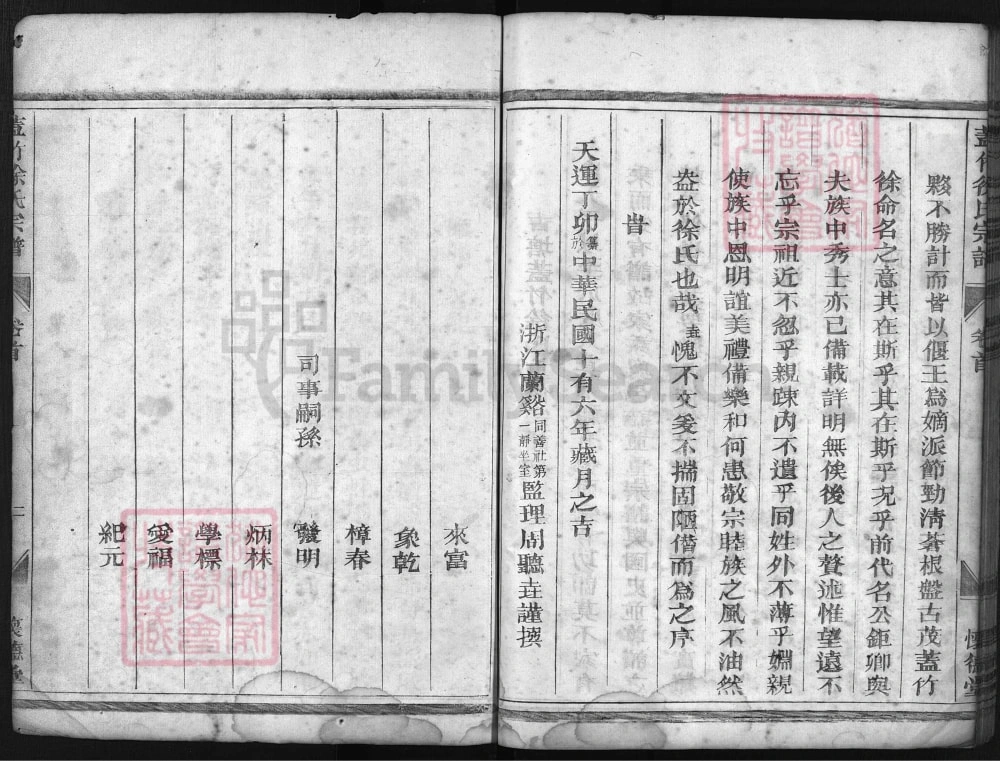 蓋竹徐氏宗譜 卷首 懷德堂
夥不勝計而皆以偃王為嫡派節勁淸蒼根盤古茂蓋竹
徐命名之意其在斯乎其在斯乎况乎前代名公鉅卿與
夫族中秀士亦已備載詳明無俟後人之贅述惟望遠不
忘乎宗祖近不忽乎親踈內不遺乎同姓外不薄乎婣親
使族中恩明誼美禮備樂和何患敬宗睦族之風不油然
盎於徐氏也哉 垚愧不文爰不揣固陋僭而為之序
旹
天運丁卯纂於中華民國十有六年藏月之吉
浙江蘭谿同善社第一靜半室監理周聽垚謹撰
司事嗣孫
來富
象乾
樟春
發明
炳林
學標
愛福
紀元
蓋竹徐氏宗譜 卷首 二 懷德堂
FamilySearch